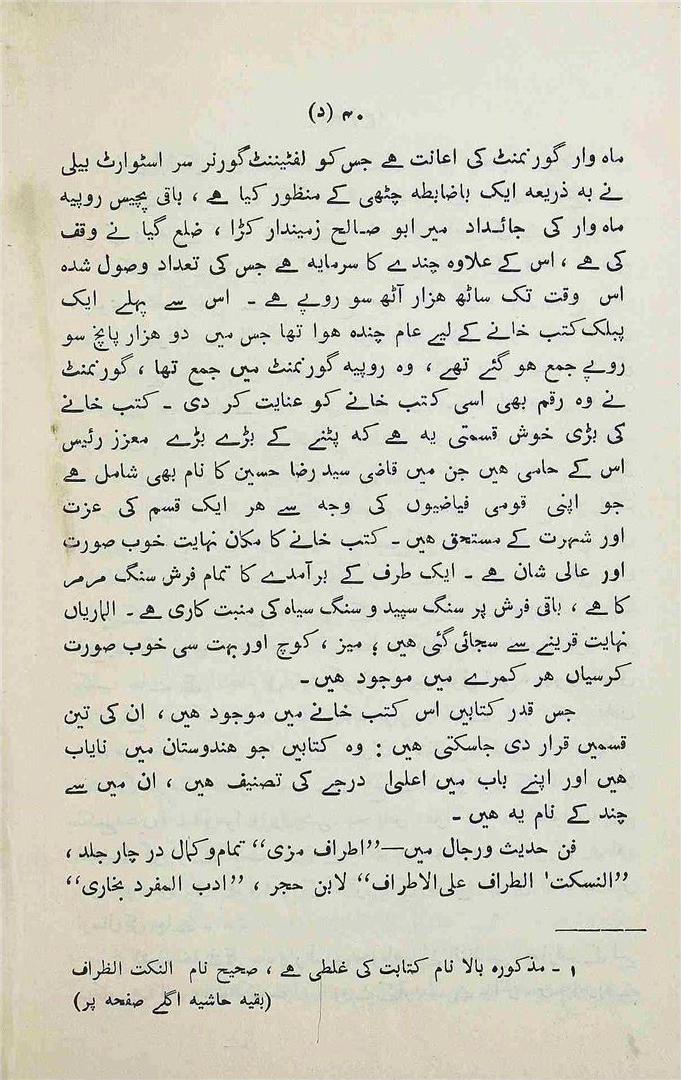 ۴۰ (د)
ماہ وار گورنمنٹ کی اعانت ہے جس کو لفٹیننٹ گورنر سر اسٹوارٹ بیلی
نے بہ ذریعہ ایک باضابطہ چٹھی کے منظور کیا ہے ، باقی پچیس روپیہ
ماہ وار کی جائداد میر ابو صالح زمیندار کڑا ، ضلع گیا نے وقف
کی ہے ، اس کے علاوہ چندے کا سرمایہ ہے جس کی تعداد وصول شدہ
اس وقت تک ساٹھ ہزار آٹھ سو روپے ہے ۔ اس سے پہلے ایک
پبلک کتب خانے کے لیے عام چندہ ہوا تھا جس میں دو ہزار پانچ سو
روپے جمع ہو گئے تھے ، وہ روپیہ گورنمنٹ میں جمع تھا ، گورنمنٹ
نے وہ رقم بھی اسی کتب خانے کو عنایت کر دی ۔ کتب خانے
کی بڑی خوش قسمتی یہ ہے کہ پٹنے کے بڑے بڑے معزز رئیس
اس کے حامی ہیں جن میں قاضی سید رضا حسین کا نام بھی شامل ہے
جو اپنی قومی فیاضیوں کی وجہ سے ہر ایک قسم کی عزت
اور شہرت کے مستحق ہیں ۔ کتب خانے کا مکان نہایت خوب صورت
اور عالی شان ہے ۔ ایک طرف کے برآمدے کا تمام فرش سنگ مرمر
کا ہے ، باقی فرش پر سنگ سپید و سنگ سیاہ کی منبت کاری ہے ۔ الماریاں
نہایت قرینے سے سجائی گئی ہیں ؛ میز ، کوچ اور بہت سی خوب صورت
کرسیاں ہر کمرے میں موجود ہیں ۔
جس قدر کتابیں اس کتب خانے میں موجود ہیں ، ان کی تین
قسمیں قرار دی جاسکتی ہیں : وہ کتابیں جو ہندوستان میں نایاب
ہیں اور اپنے باب میں اعلیٰ درجے کی تصنیف ہیں ، ان میں سے
چند کے نام یہ ہیں ۔
فن حدیث ورجال میں—”اطراف مزی“ تمام وکمال در چار جلد ،
”النسکت' الطراف علی الاطراف“ لابن حجر ، ”ادب المفرد بخاری“
۱ ۔ مذکورہ بالا نام کتابت کی غلطی ہے ، صحیح نام النکت الظراف
(بقیہ حاشیہ اگلے صفحہ پر)